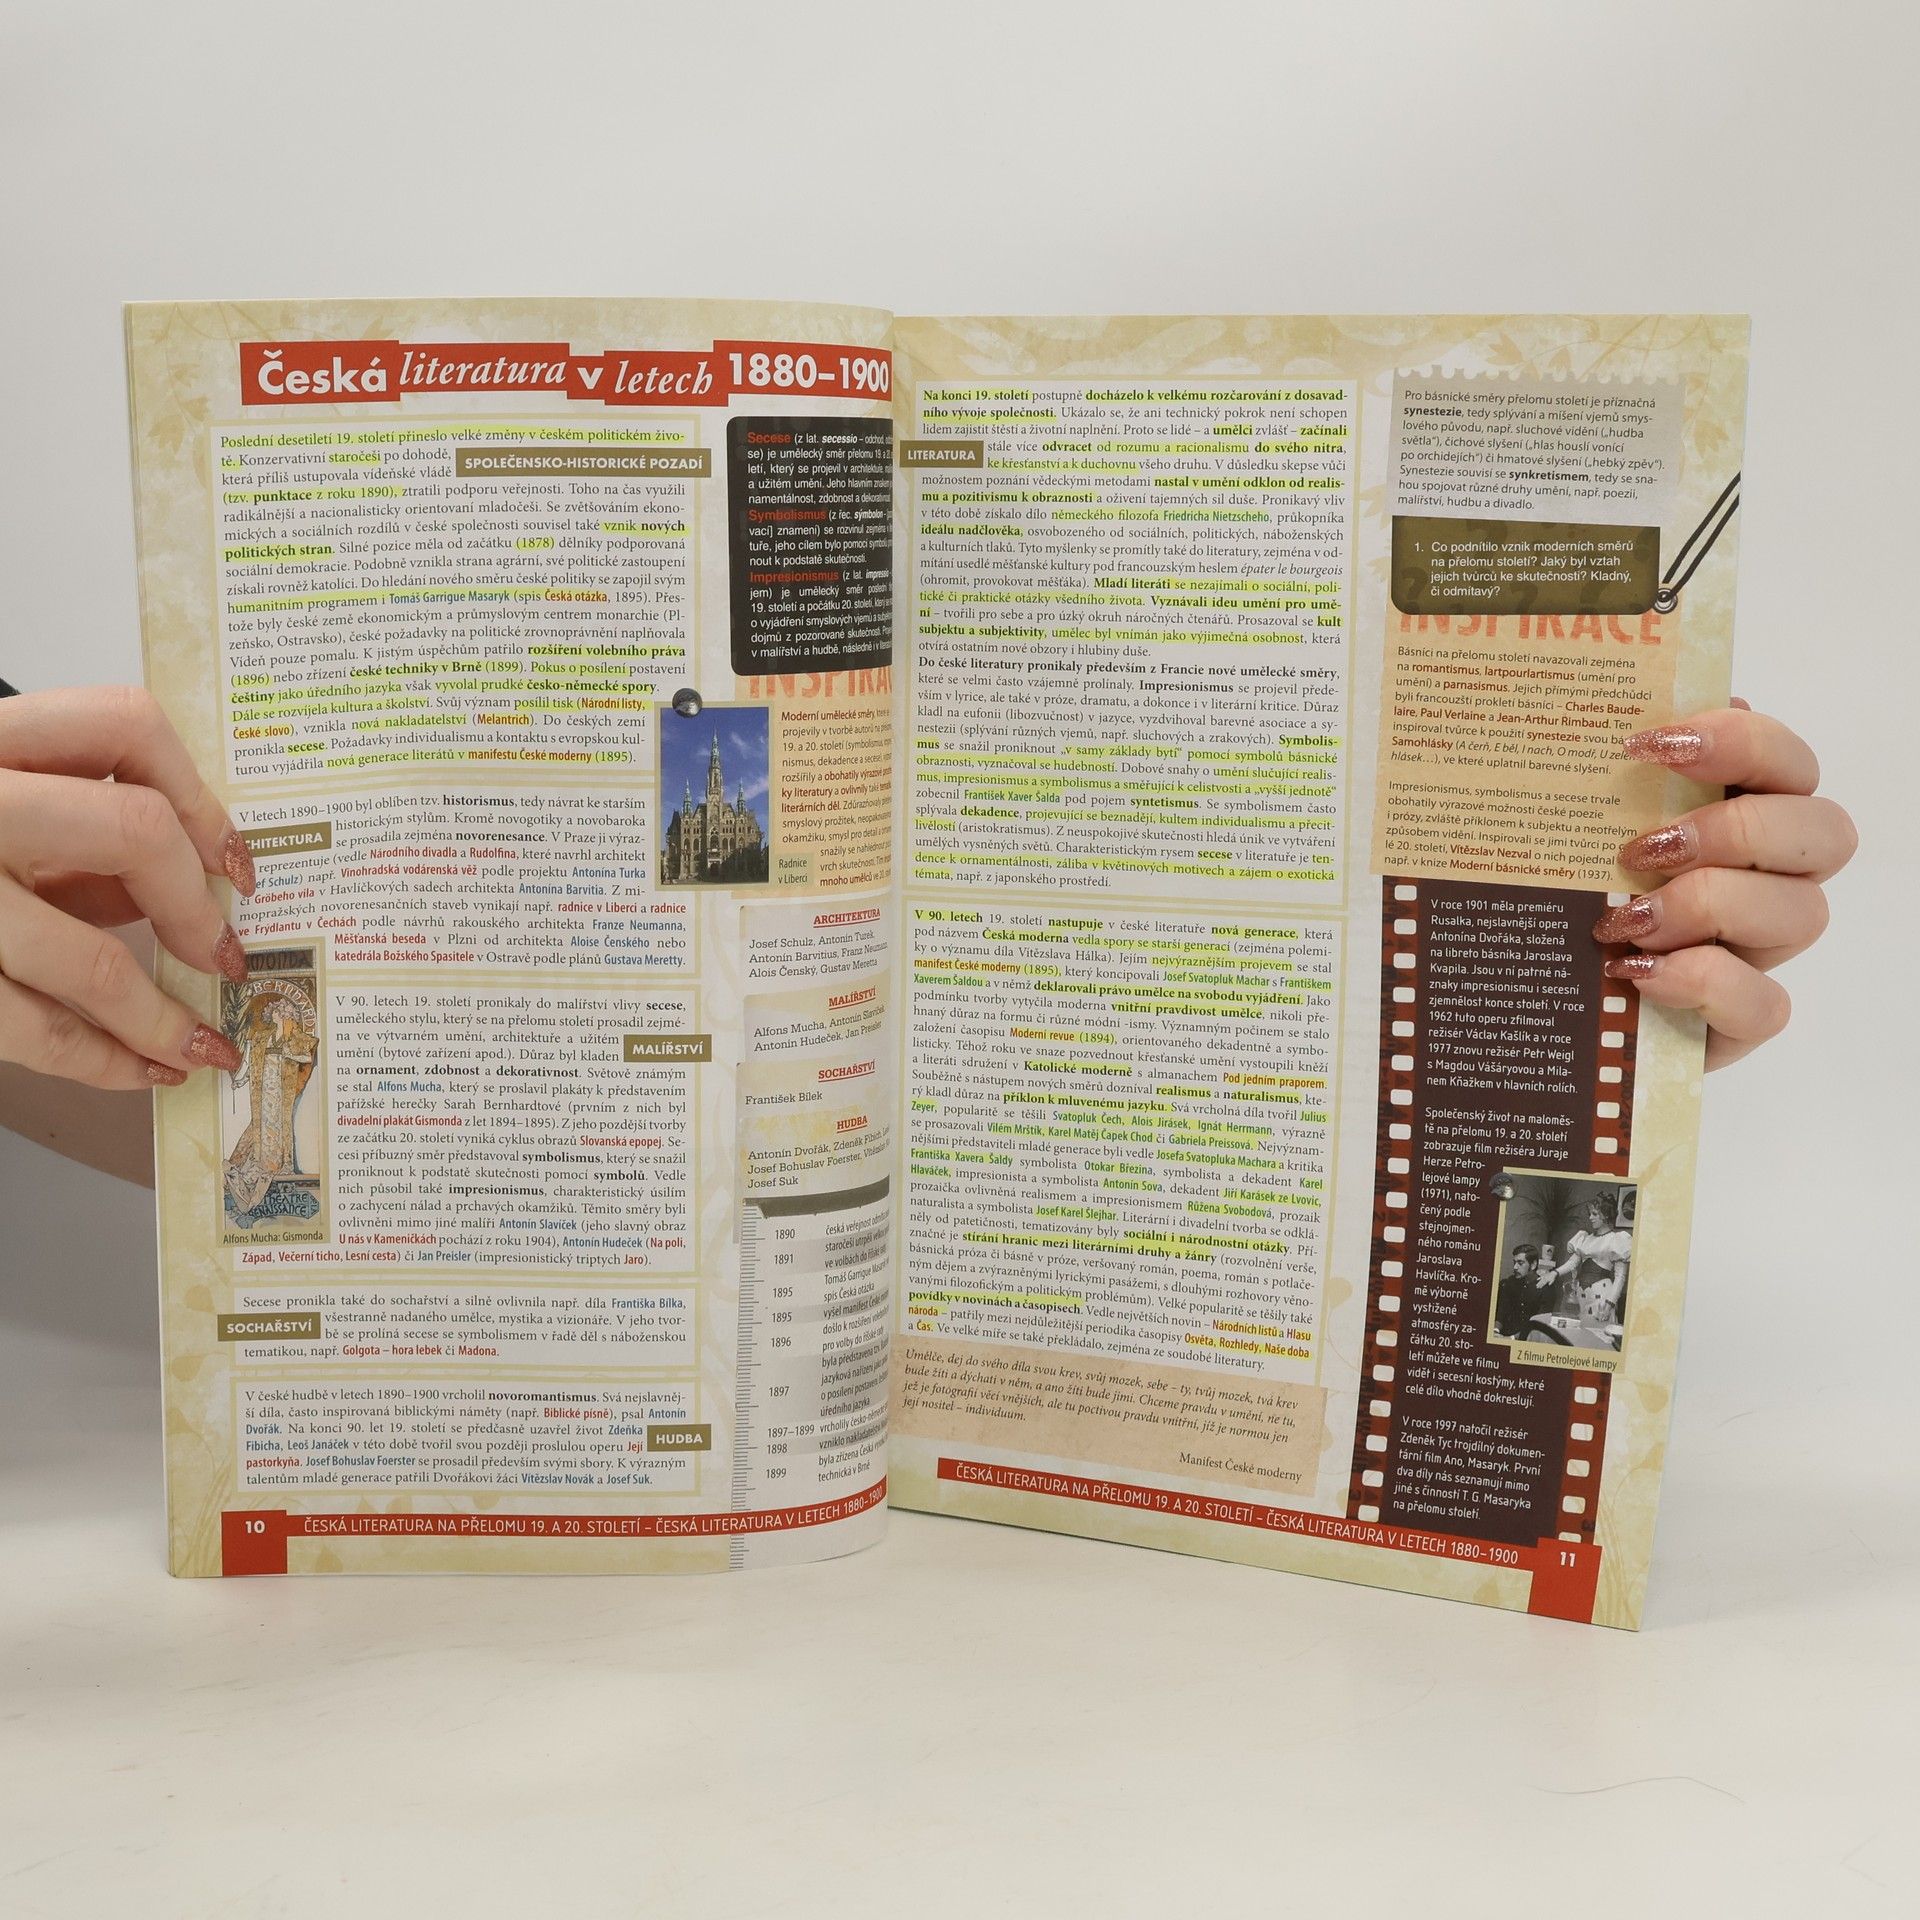 Česká literatura v letech 1880–1900
Poslední desetiletí 19. století přineslo velké změny v českém politickém živo-
tě. Konzervativní staročeši po dohodě,
SPOLEČENSKO-HISTORICKÉ POZADÍ
která příliš ustupovala vídeňské vládě
(tzv. punktace z roku 1890), ztratili podporu veřejnosti. Toho na čas využili
radikálnější a nacionalisticky orientovaní mladočeši. Se zvětšováním ekono-
mických a sociálních rozdílů v české společnosti souvisel také vznik nových
politických stran. Silné pozice měla od začátku (1878) dělníky podporovaná
sociální demokracie. Podobně vznikla strana agrární, své politické zastoupení
získali rovněž katolíci. Do hledání nového směru české politiky se zapojil svým
humanitním programem i Tomáš Garrigue Masaryk (spis Česká otázka, 1895). Přes-
tože byly české země ekonomickým a průmyslovým centrem monarchie (Pl-
zeňsko, Ostravsko), české požadavky na politické zrovnoprávnění naplňovala
Vídeň pouze pomalu. K jistým úspěchům patřilo rozšíření volebního práva
(1896) nebo zřízení české techniky v Brně (1899). Pokus o posílení postavení
češtiny jako úředního jazyka však vyvolal prudké česko-německé spory.
Dále se rozvíjela kultura a školství. Svůj význam posílil tisk (Národní listy,
České slovo), vznikla nová nakladatelství (Melantrich). Do českých zemí
pronikla secese. Požadavky individualismu a kontaktu s evropskou kul-
turou vyjádřila nová generace literátů v manifestu České moderny (1895).
V letech 1890–1900 byl oblíben tzv. historismus, tedy návrat ke starším
CHITEKTURA
historickým stylům. Kromě novogotiky a novobaroka
se prosadila zejména novorenesance. V Praze ji výraz-
reprezentuje (vedle Národního divadla a Rudolfina, které navrhl architekt
ef Schulz) např. Vinohradská vodárenská věž podle projektu Antonína Turka
či Gröbeho vila v Havlíčkových sadech architekta Antonína Barvitia. Z mi-
mopražských novorenesančních staveb vynikají např. radnice v Liberci a radnice
ve Frýdlantu v Čechách podle návrhů rakouského architekta Franze Neumanna,
Měšťanská beseda v Plzni od architekta Aloise Čenského nebo
katedrála Božského Spasitele v Ostravě podle plánů Gustava Meretty.
V 90. letech 19. století pronikaly do malířství vlivy secese,
uměleckého stylu, který se na přelomu století prosadil zejmé-
na ve výtvarném umění, architektuře a užitém
MALÍŘSTVÍ
umění (bytové zařízení apod.). Důraz byl kladen
na ornament, zdobnost a dekorativnost. Světově známým
se stal Alfons Mucha, který se proslavil plakáty k představením
pařížské herečky Sarah Bernhardtové (prvním z nich byl
divadelní plakát Gismonda z let 1894–1895). Z jeho pozdější tvorby
ze začátku 20. století vyniká cyklus obrazů Slovanská epopej. Se-
cesi příbuzný směr představoval symbolismus, který se snažil
proniknout k podstatě skutečnosti pomocí symbolů. Vedle
nich působil také impresionismus, charakteristický úsilím
o zachycení nálad a prchavých okamžiků. Těmito směry byli
ovlivněni mimo jiné malíři Antonín Slavíček (jeho slavný obraz
U nás v Kameničkách pochází z roku 1904), Antonín Hudeček (Na poli,
Západ, Večerní ticho, Lesní cesta) či Jan Preisler (impresionistický triptych Jaro).
MONDA
BERNHARDT
THEATRE
RENAISSANCE
Alfons Mucha: Gismonda
Secese pronikla také do sochařství a silně ovlivnila např. díla Františka Bílka,
SOCHAŘSTVÍ
všestranně nadaného umělce, mystika a vizionáře. V jeho tvor-
bě se prolíná secese se symbolismem v řadě děl s náboženskou
tematikou, např. Golgota – hora lebek či Madona.
V české hudbě v letech 1890–1900 vrcholil novoromantismus. Svá nejslavněj-
ší díla, často inspirovaná biblickými náměty (např. Biblické písně), psal Antonín
Dvořák. Na konci 90. let 19. století se předčasně uzavřel život Zdeňka
HUDBA
Fibicha, Leoš Janáček v této době tvořil svou později proslulou operu Její
pastorkyňa. Josef Bohuslav Foerster se prosadil především svými sbory. K výrazným
talentům mladé generace patřili Dvořákovi žáci Vítězslav Novák a Josef Suk.
10
ČESKÁ LITERATURA NA PŘELOMU 19. A 20. STOLETÍ – ČESKÁ LITERATURA V LETECH 1880–1900
Secese (z lat. secessio – odchod,
se) je umělecký směr přelomu 19. a
letí, který se projevil v architektuře,
a užitém umění. Jeho hlavním znakem
namentálnost, zdobnost a dekorativnost
Symbolismus (z řec. symbolon –
vací] znamení) se rozvinul zejména v
tuře, jeho cílem bylo pomocí symbolů
nout k podstatě skutečnosti.
Impresionismus (z lat. impressio –
jem) je umělecký směr poslední
19. století a počátku 20. století, který
o vyjádření smyslových vjemů a
dojmů z pozorované skutečnosti.
v malířství a hudbě, následně i v
INSPIRA
Moderní umělecké směry, které
projevily v tvorbě autorů na
19. a 20. století (symbolismus,
nismus, dekadence a secese),
rozšířily a obohatily výrazové
ky literatury a ovlivnily také
literárních děl. Zdůrazňovaly
smyslový prožitek,
okamžiku, smysl pro detail a
snažily se nahlédnout
vrch skutečnosti. Tím
mnoho umělců ve 20.
Radnice
v Liberci
ARCHITEKTURA
Josef Schulz, Antonín Turek,
Antonín Barvitius, Franz Neumann,
Alois Čenský, Gustav Meretta
MALÍŘSTVÍ
Alfons Mucha, Antonín Slavíček,
Antonín Hudeček, Jan Preisler
SOCHAŘSTVÍ
František Bílek
HUDBA
Antonín Dvořák, Zdeněk Fibich,
Josef Bohuslav Foerster, Vítězslav
Josef Suk
1890 česká veřejnost
staročeši utrpěli
1891 ve volbách do říšské
Tomáš Garrigue Masaryk
1895 spis Česká otázka
1895 vyšel manifest České
došlo k rozšíření
1896 pro volby do říšské
byla představena
jazyková nařízení
1897 o posílení postavení
úředního jazyka
1897–1899 vrcholily česko-německé
1898 vzniklo nakladatelství
byla zřízena Česká
1899 technická v Brně
Na konci 19. století postupně docházelo k velkému rozčarování z dosavad-
ního vývoje společnosti. Ukázalo se, že ani technický pokrok není schopen
lidem zajistit štěstí a životní naplnění. Proto se lidé – a umělci zvlášť – začínali
LITERATURA
stále více odvracet od rozumu a racionalismu do svého nitra,
ke křesťanství a k duchovnu všeho druhu. V důsledku skepse vůči
možnostem poznání vědeckými metodami nastal v umění odklon od realis-
mu a pozitivismu k obraznosti a oživení tajemných sil duše. Pronikavý vliv
v této době získalo dílo německého filozofa Friedricha Nietzscheho, průkopníka
ideálu nadčlověka, osvobozeného od sociálních, politických, náboženských
a kulturních tlaků. Tyto myšlenky se promítly také do literatury, zejména v od-
mítání usedlé měšťanské kultury pod francouzským heslem épater le bourgeois
(ohromit, provokovat měšťáka). Mladí literáti se nezajímali o sociální, poli-
tické či praktické otázky všedního života. Vyznávali ideu umění pro umě-
ní – tvořili pro sebe a pro úzký okruh náročných čtenářů. Prosazoval se kult
subjektu a subjektivity, umělec byl vnímán jako výjimečná osobnost, která
otvírá ostatním nové obzory i hlubiny duše.
Do české literatury pronikaly především z Francie nové umělecké směry,
které se velmi často vzájemně prolínaly. Impresionismus se projevil přede-
vším v lyrice, ale také v próze, dramatu, a dokonce i v literární kritice. Důraz
kladl na eufonii (libozvučnost) v jazyce, vyzdvihoval barevné asociace a sy-
nestezii (splývání různých vjemů, např. sluchových a zrakových). Symbolis-
mus se snažil proniknout „v samy základy bytí“ pomocí symbolů básnické
obraznosti, vyznačoval se hudebností. Dobové snahy o umění slučující realis-
mus, impresionismus a symbolismus a směřující k celistvosti a „vyšší jednotě“
zobecnil František Xaver Šalda pod pojem syntetismus. Se symbolismem často
splývala dekadence, projevující se beznadějí, kultem individualismu a přecit-
livělostí (aristokratismus). Z neuspokojivé skutečnosti hledá únik ve vytváření
umělých vysněných světů. Charakteristickým rysem secese v literatuře je ten-
dence k ornamentálnosti, záliba v květinových motivech a zájem o exotická
témata, např. z japonského prostředí.
V 90. letech 19. století nastupuje v české literatuře nová generace, která
pod názvem Česká moderna vedla spory se starší generací (zejména polemi-
ky o významu díla Vítězslava Hálka). Jejím nejvýraznějším projevem se stal
manifest České moderny (1895), který koncipovali Josef Svatopluk Machar s Františkem
Xaverem Šaldou a v němž deklarovali právo umělce na svobodu vyjádření. Jako
podmínku tvorby vytyčila moderna vnitřní pravdivost umělce, nikoli pře-
hnaný důraz na formu či různé módní -ismy. Významným počinem se stalo
založení časopisu Moderní revue (1894), orientovaného dekadentně a symbo-
listicky. Téhož roku ve snaze pozvednout křesťanské umění vystoupili kněží
a literáti sdružení v Katolické moderně s almanachem Pod jedním praporem.
Souběžně s nástupem nových směrů dozníval realismus a naturalismus, kte-
rý kladl důraz na příklon k mluvenému jazyku. Svá vrcholná díla tvořil Julius
Zeyer, popularitě se těšili Svatopluk Čech, Alois Jirásek, Ignát Herrmann, výrazně
se prosazovali Vilém Mrštík, Karel Matěj Čapek Chod či Gabriela Preissová. Nejvýznam-
nějšími představiteli mladé generace byli vedle Josefa Svatopluka Machara a kritika
Františka Xavera Šaldy symbolista Otokar Březina, symbolista a dekadent Karel
Hlaváček, impresionista a symbolista Antonín Sova, dekadent Jiří Karásek ze Lvovic,
prozaička ovlivněná realismem a impresionismem Růžena Svobodová, prozaik
naturalista a symbolista Josef Karel Šlejhar. Literární i divadelní tvorba se odklá-
něly od patetičnosti, tematizovány byly sociální i národnostní otázky. Pří-
značné je stírání hranic mezi literárními druhy a žánry (rozvolnění verše,
básnická próza či básně v próze, veršovaný román, poema, román s potlače-
ným dějem a zvýrazněnými lyrickými pasážemi, s dlouhými rozhovory věno-
vanými filozofickým a politickým problémům). Velké popularitě se těšily také
povídky v novinách a časopisech. Vedle největších novin – Národních listů a Hlasu
národa – patřily mezi nejdůležitější periodika časopisy Osvěta, Rozhledy, Naše doba
a Čas. Ve velké míře se také překládalo, zejména ze soudobé literatury.
Umělče, dej do svého díla svou krev, svůj mozek, sebe – ty, tvůj mozek, tvá krev
bude žíti a dýchati v něm, a ano žíti bude jimi. Chceme pravdu v umění, ne tu,
jež je fotografií věcí vnějších, ale tu poctivou pravdu vnitřní, jíž je normou jen
její nositel – individuum.
Manifest České moderny
Pro básnické směry přelomu století je příznačná
synestezie, tedy splývání a míšení vjemů smys-
lového původu, např. sluchové vidění („hudba
světla“), čichové slyšení („hlas houslí vonící
po orchidejích“) či hmatové slyšení („hebký zpěv“).
Synestezie souvisí se synkretismem, tedy se sna-
hou spojovat různé druhy umění, např. poezii,
malířství, hudbu a divadlo.
1. Co podnítilo vznik moderních směrů
na přelomu století? Jaký byl vztah
jejich tvůrců ke skutečnosti? Kladný,
či odmítavý?
INSPIRACE
Básníci na přelomu století navazovali zejména
na romantismus, lartpourlartismus (umění pro
umění) a parnasismus. Jejich přímými předchůdci
byli francouzští prokletí básníci – Charles Baude-
laire, Paul Verlaine a Jean-Arthur Rimbaud. Ten
inspiroval tvůrce k použití synestezie svou bá
Samohlásky (A čerň, E běl, I nach, O modř, U zeleň
hlásek…), ve které uplatnil barevné slyšení.
Impresionismus, symbolismus a secese trvale
obohatily výrazové možnosti české poezie
i prózy, zvláště příklonem k subjektu a neotřelým
způsobem vidění. Inspirovali se jimi tvůrci po
lé 20. století, Vítězslav Nezval o nich pojednal
např. v knize Moderní básnické směry (1937).
V roce 1901 měla premiéru
Rusalka, nejslavnější opera
Antonína Dvořáka, složená
na libreto básníka Jaroslava
Kvapila. Jsou v ní patrné ná-
znaky impresionismu i secesní
zjemnělost konce století. V roce
1962 tuto operu zfilmoval
režisér Václav Kašlík a v roce
1977 znovu režisér Petr Weigl
s Magdou Vášáryovou a Mila-
nem Kňažkem v hlavních rolích.
Společenský život na malomě-
stě na přelomu 19. a 20. století
zobrazuje film režiséra Juraje
Herze Petro-
lejové lampy
(1971), nato-
čený podle
stejnojmen-
ného románu
Jaroslava
Havlíčka. Kro-
mě výborně
vystižené
atmosféry za-
čátku 20. sto-
letí můžete ve filmu
vidět i secesní kostýmy, které
celé dílo vhodně dokreslují.
Z filmu Petrolejové lampy
V roce 1997 natočil režisér
Zdeněk Tyc trojdílný dokumen-
tární film Ano, Masaryk. První
dva díly nás seznamují mimo
jiné s činností T. G. Masaryka
na přelomu století.
ČESKÁ LITERATURA NA PŘELOMU 19. A 20. STOLETÍ – ČESKÁ LITERATURA V LETECH 1880–1900
11